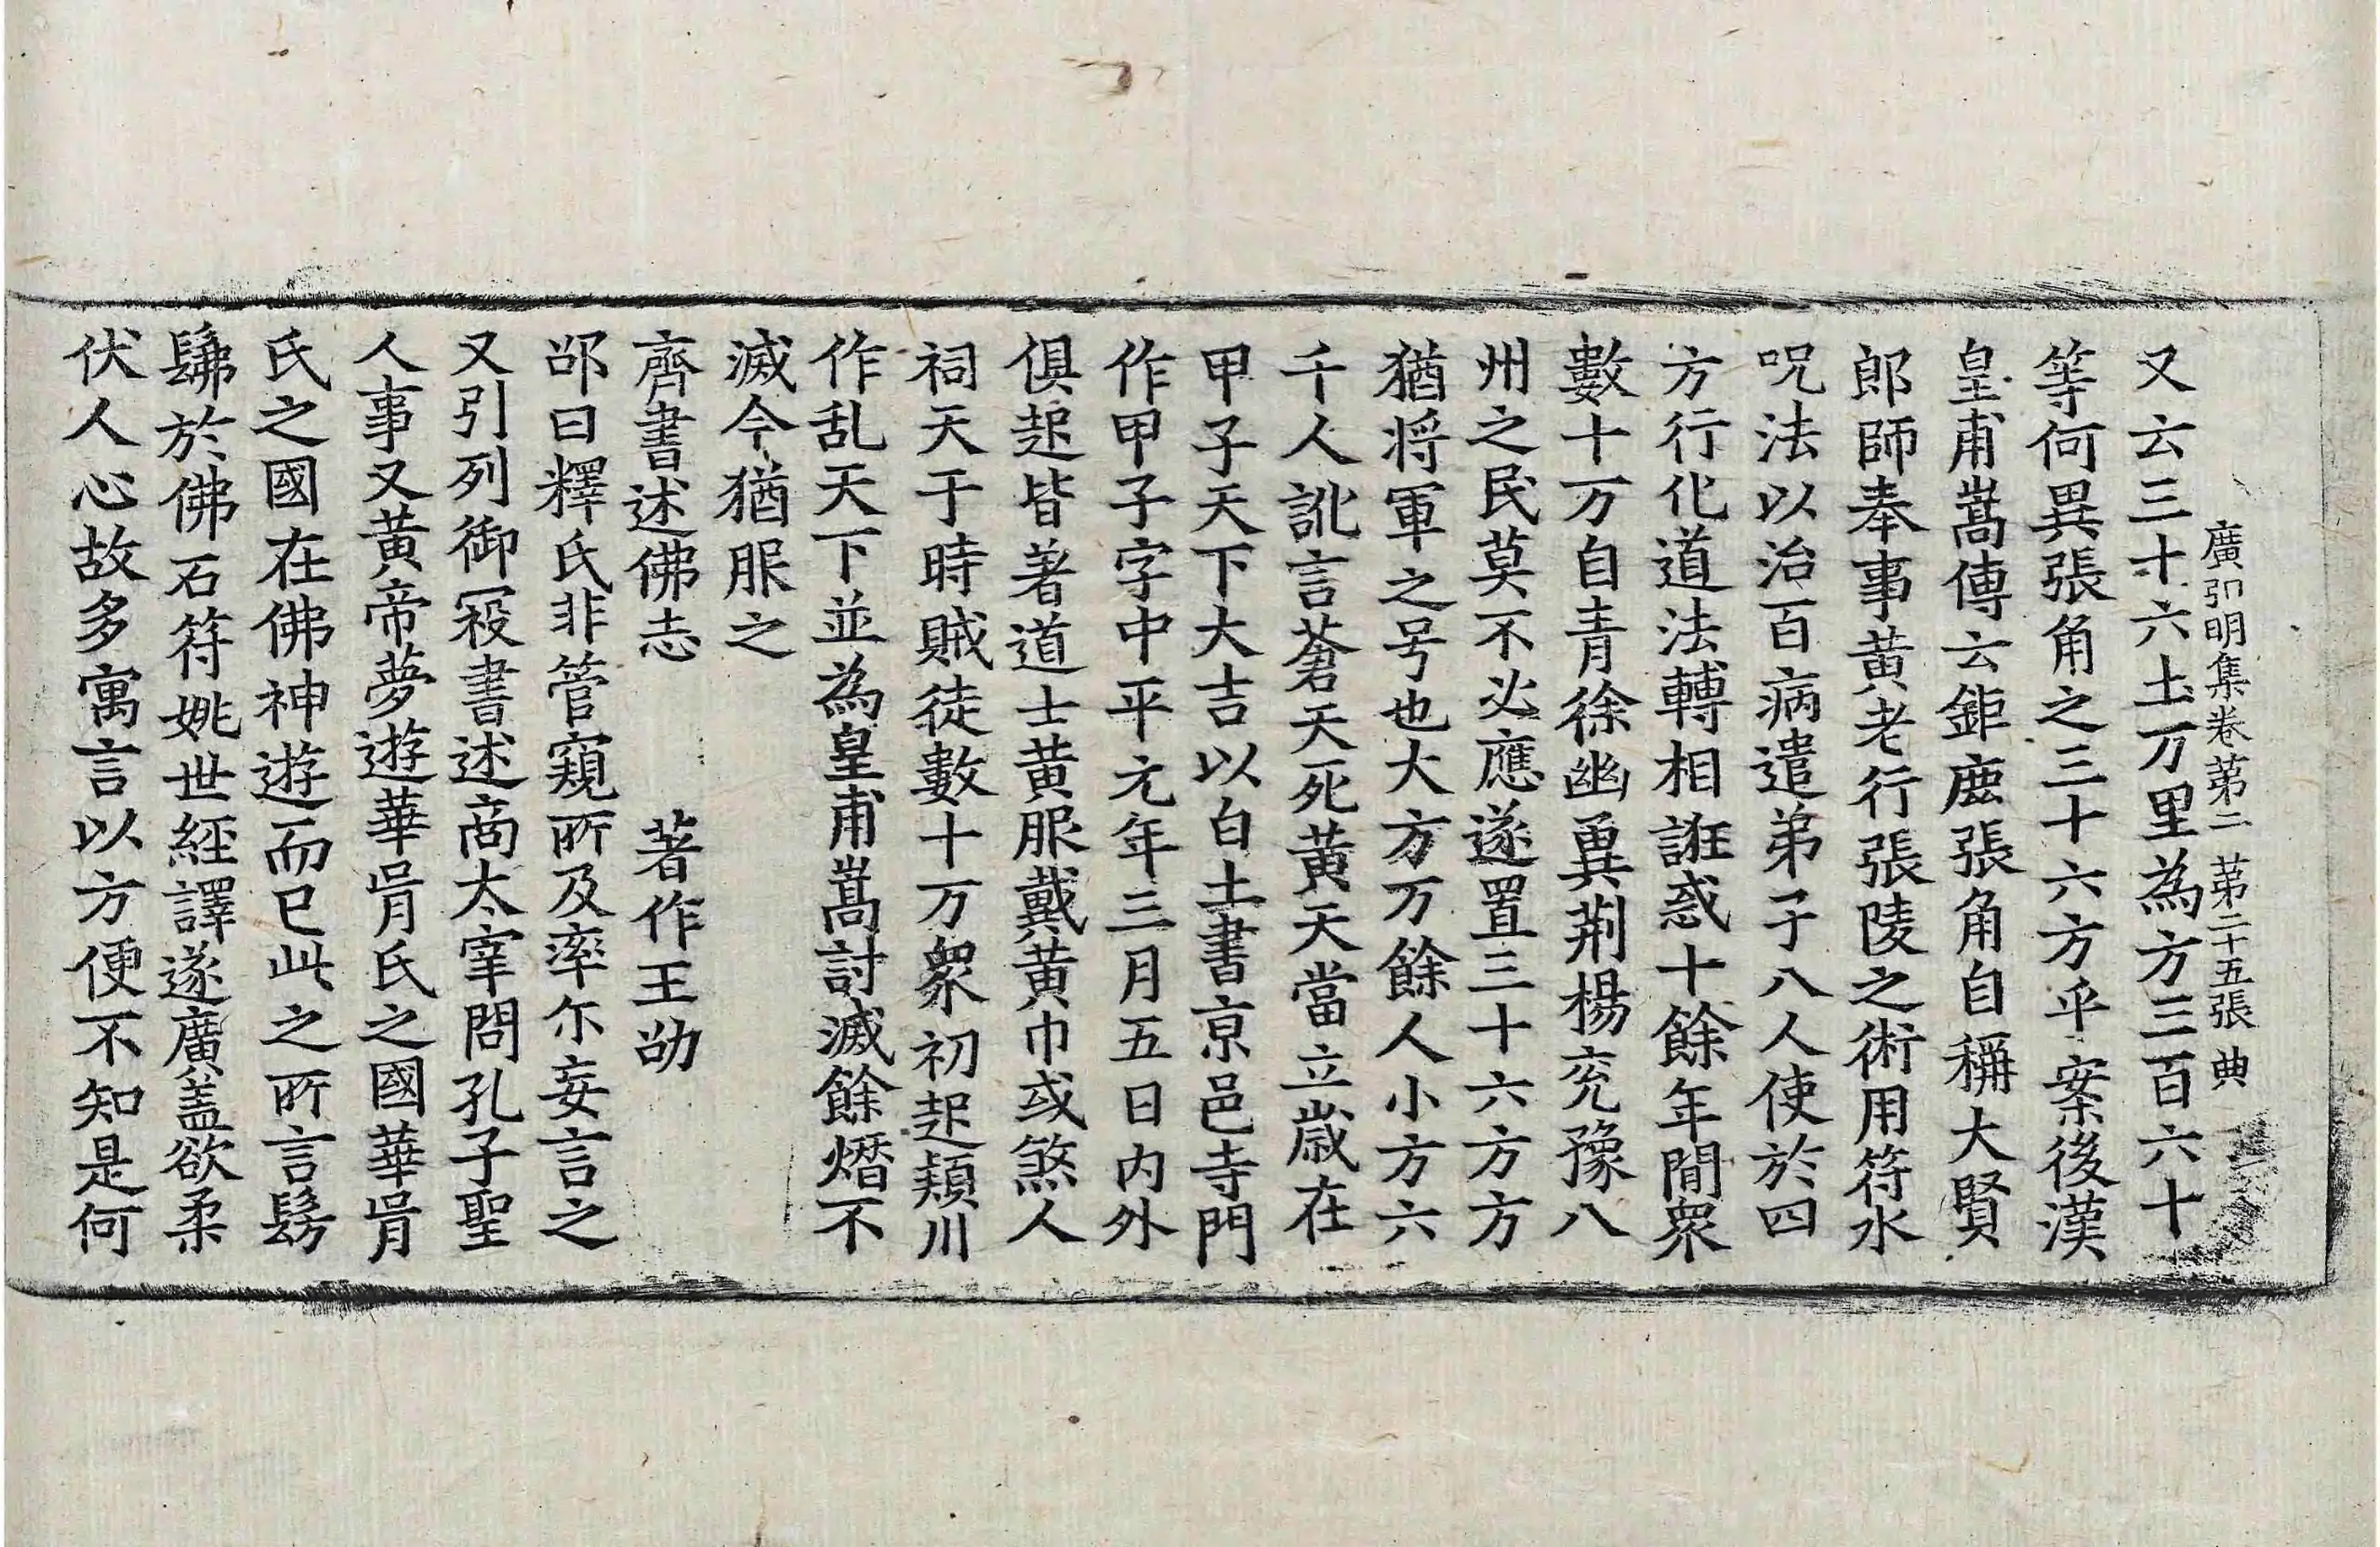 廣弘明集卷第二 第二十五張 典
又云三十六土万里為方三百六十
等何異張角之三十六方乎案後漢
皇甫嵩傳云鉅鹿張角自稱大賢
郎師奉事黃老行張陵之術用符水
呪法以治百病遣弟子八人使於四
方行化道法轉相誑惑十餘年間衆
數十万自青徐幽冀荊楊兖豫八
州之民莫不必應遂置三十六方方
猶將軍之号也大方万餘人小方六
千人訛言蒼天死黃天當立歲在
甲子天下大吉以白土書京邑寺門
作甲子字中平元年三月五日內外
俱起皆著道士黃服戴黃巾或煞人
祠天于時賊徒數十万衆初起頴川
作乱天下並為皇甫嵩討滅餘熸不
滅今猶服之
齊書述佛志 著作王劭
邵曰釋氏非管窺所及率尓妄言之
又引列御寇書述商太宰問孔子聖
人事又黃帝夢遊華胥氏之國華胥
氏之國在佛神遊而已此之所言髣
髴於佛石符姚世經譯遂廣蓋欲柔
伏人心故多寓言以方便不知是何